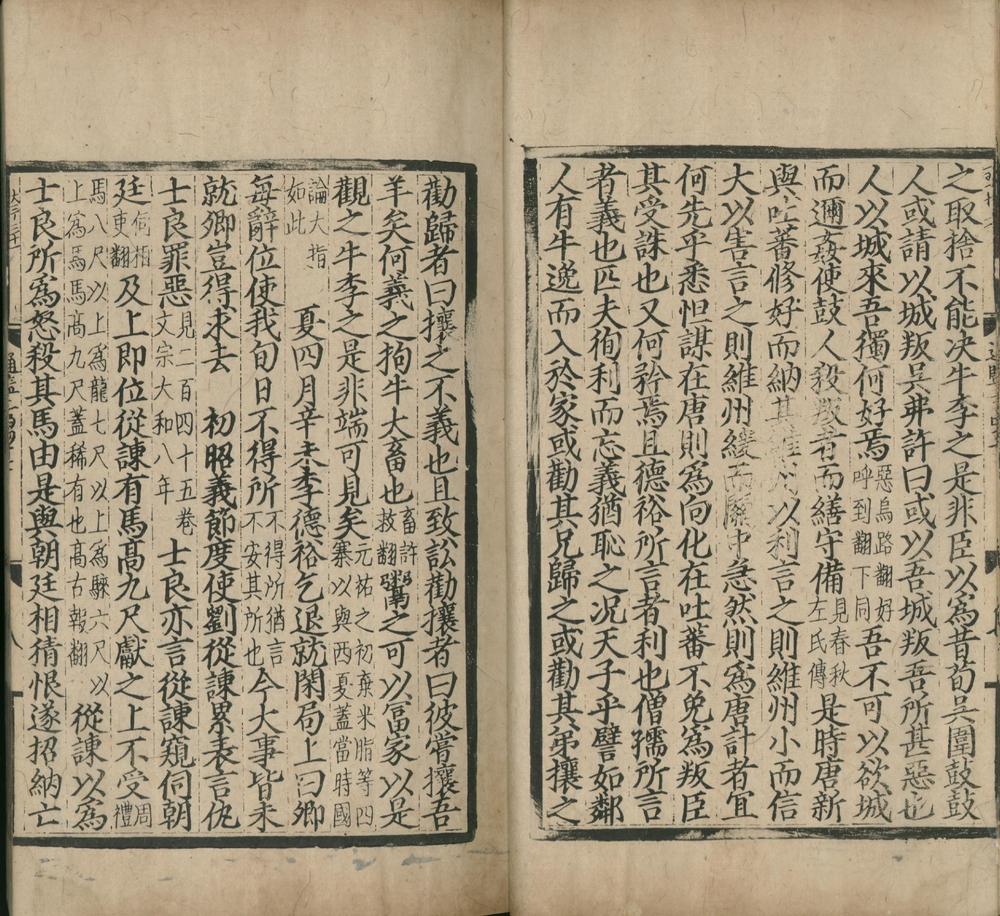 之取捨不能決牛李之是非臣以爲昔荀吳圍鼓鼓
人或請以城叛吳弗許曰或以吾城叛吾所甚惡也
人以城來吾獨何好焉惡烏路翻好呼到翻下同吾不可以欲城
而邇姦使鼓人殺叛者而繕守備見春秋左氏傳是時唐新
與吐蕃修好而納其維州以利言之則維州小而信
大以害言之則維州緩而關中急然則爲唐計者宜
何先乎悉怛謀在唐則爲向化在吐蕃不免爲叛臣
其受誅也又何矜焉且德裕所言者利也僧孺所言
者義也匹夫徇利而忘義猶恥之况天子乎譬如鄰
人有牛逸而入於家或勸其兄歸之或勸其弟攘之
勸歸者曰攘之不義也且致訟勸攘者曰彼嘗攘吾
羊矣何義之拘牛大畜也畜許救翻鬻之可以富家以是
觀之牛李之是非端可見矣元祐之初棄米脂等四寨以與西夏蓋當時國
論大指如此 夏四月辛未李德裕乞退就閑局上曰卿
每辭位使我旬日不得所不得所猶言不安其所也今大事皆未
就卿豈得求去 初昭義節度使劉從諫累表言仇
士良罪惡見二百四十五卷文宗大和八年士良亦言從諫窺伺朝
廷伺相吏翻及上即位從諫有馬高九尺獻之上不受周禮
馬八尺以上爲龍七尺以上爲騋六尺以上爲馬馬高九尺蓋稀有也高古報翻從諫以爲
士良所爲怒殺其馬由是與朝廷相猜恨遂招納亡